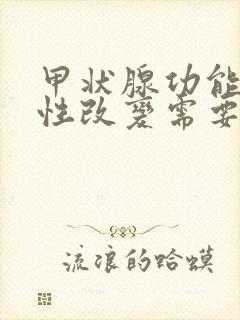 甲状腺功能
性改变需要
流浪的哈蟆